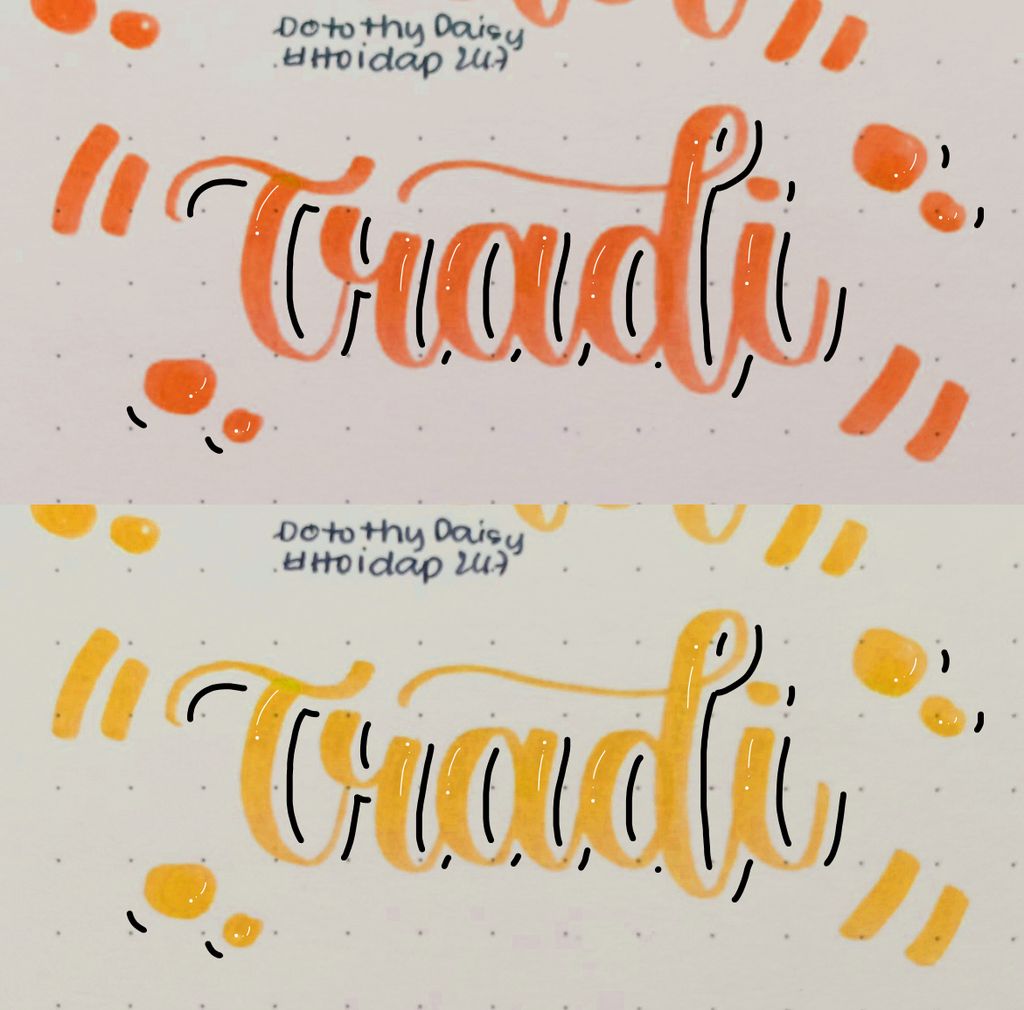 Dotothy Daisy
#Hoidap 247
Tradi
Dotothy Daisy
#Hoidap 247
Tradi